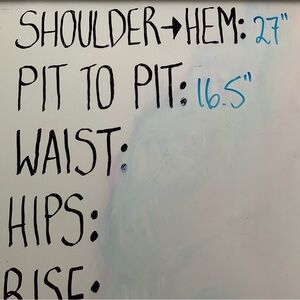 SHOULDER→HEM: 27"
PIT TO PIT: 16.5"
WAIST:
HIPS:
RISE: